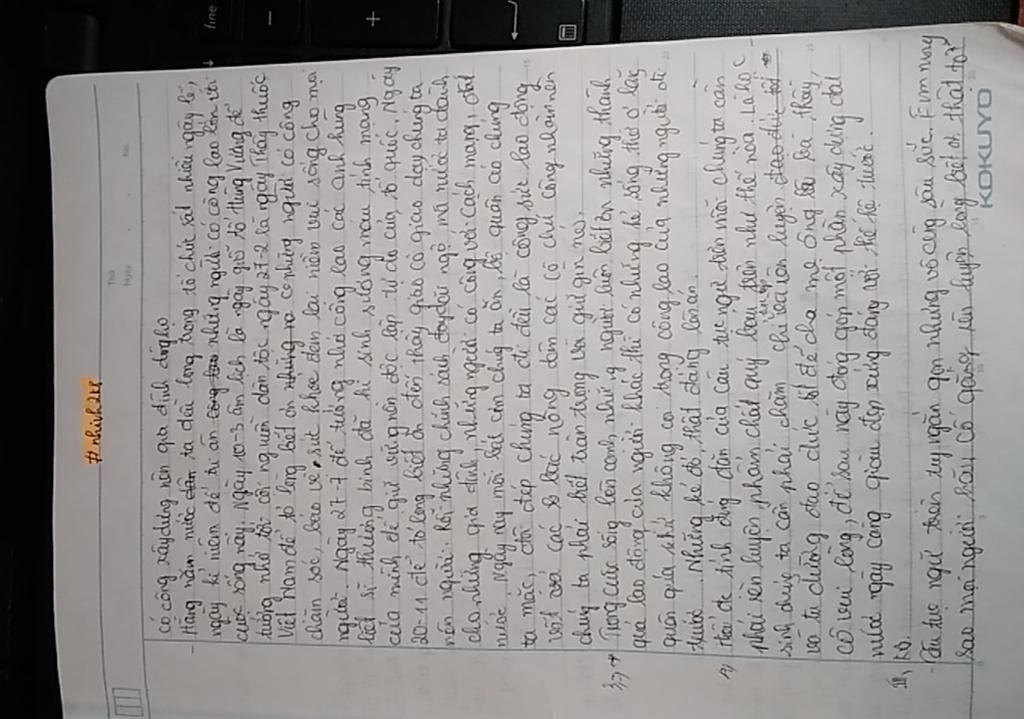 #nhinh24
có công xây dựng nên gia đình dòng họ
- Hằng năm nước dân ta đều long trọng tổ chức rất nhiều ngày lễ,
ngày kỉ niệm để tri ân công lao những người có công lao lớn với
cuộc sống này. Ngày 10-3 âm lịch là ngày giỗ tổ Hùng Vương để
tưởng nhớ tới cội nguồn dân tộc ngày 27-2 là ngày Thầy thuốc
Việt Nam để tỏ lòng biết ơn những ra những người có công
chăm sóc, bảo vệ sức khoẻ đem lại niềm vui sống cho mọi
người. Ngày 27-7 để tưởng nhớ công lao các anh hùng
liệt sĩ thương binh đã hi sinh xương máu tính mạng
của mình để giữ vững nền độc lập tự do của tổ quốc. Ngày
20-11 để tỏ lòng biết ơn đến thầy giáo cô giáo dạy dựng ta
nên người. Rồi những chính sách đãi ngộ mà nước ta dành
cho những gia đình, những người có công với cách mạng, đất
nước. Ngày nay mỗi bát cơm chúng ta ăn, bộ quần áo chúng
ta mặc, đôi dép chúng ta đi đều là công sức lao động
vất vả các bác nông dân các cô chú công nhân nên
chúng ta phải biết trân trọng và giữ gìn nó.
3, → Trong cuộc sống bên cạnh những người luôn biết ơn những thành
quả lao động của người khác thì có những kẻ sống thờ ơ lãng
quên quá khứ không coi trọng công lao của những người đi
trước. Những kẻ đó thật đáng lên án.
4, Thái độ tính đúng đắn của câu tục ngữ trên mỗi chúng ta cần
phải rèn luyện phẩm chất quý báu trên như thế nào. Là học
sinh chúng ta cần phải chăm chỉ học tập rèn luyện đạo đức tốt
và tu dưỡng đạo đức tốt để cha mẹ ông bà thầy
cô vui lòng, để sau này đóng góp một phần xây dựng đất
nước ngày càng giàu đẹp xứng đáng với thế hệ trước.
III, KB.
- Câu tục ngữ trên tuy ngắn gọn nhưng vô cùng sâu sắc. Em mong
sao mọi người hãy cố gắng rèn luyện lòng biết ơn thật tốt
KOKUYO
Thứ
Ngày
No.
fine